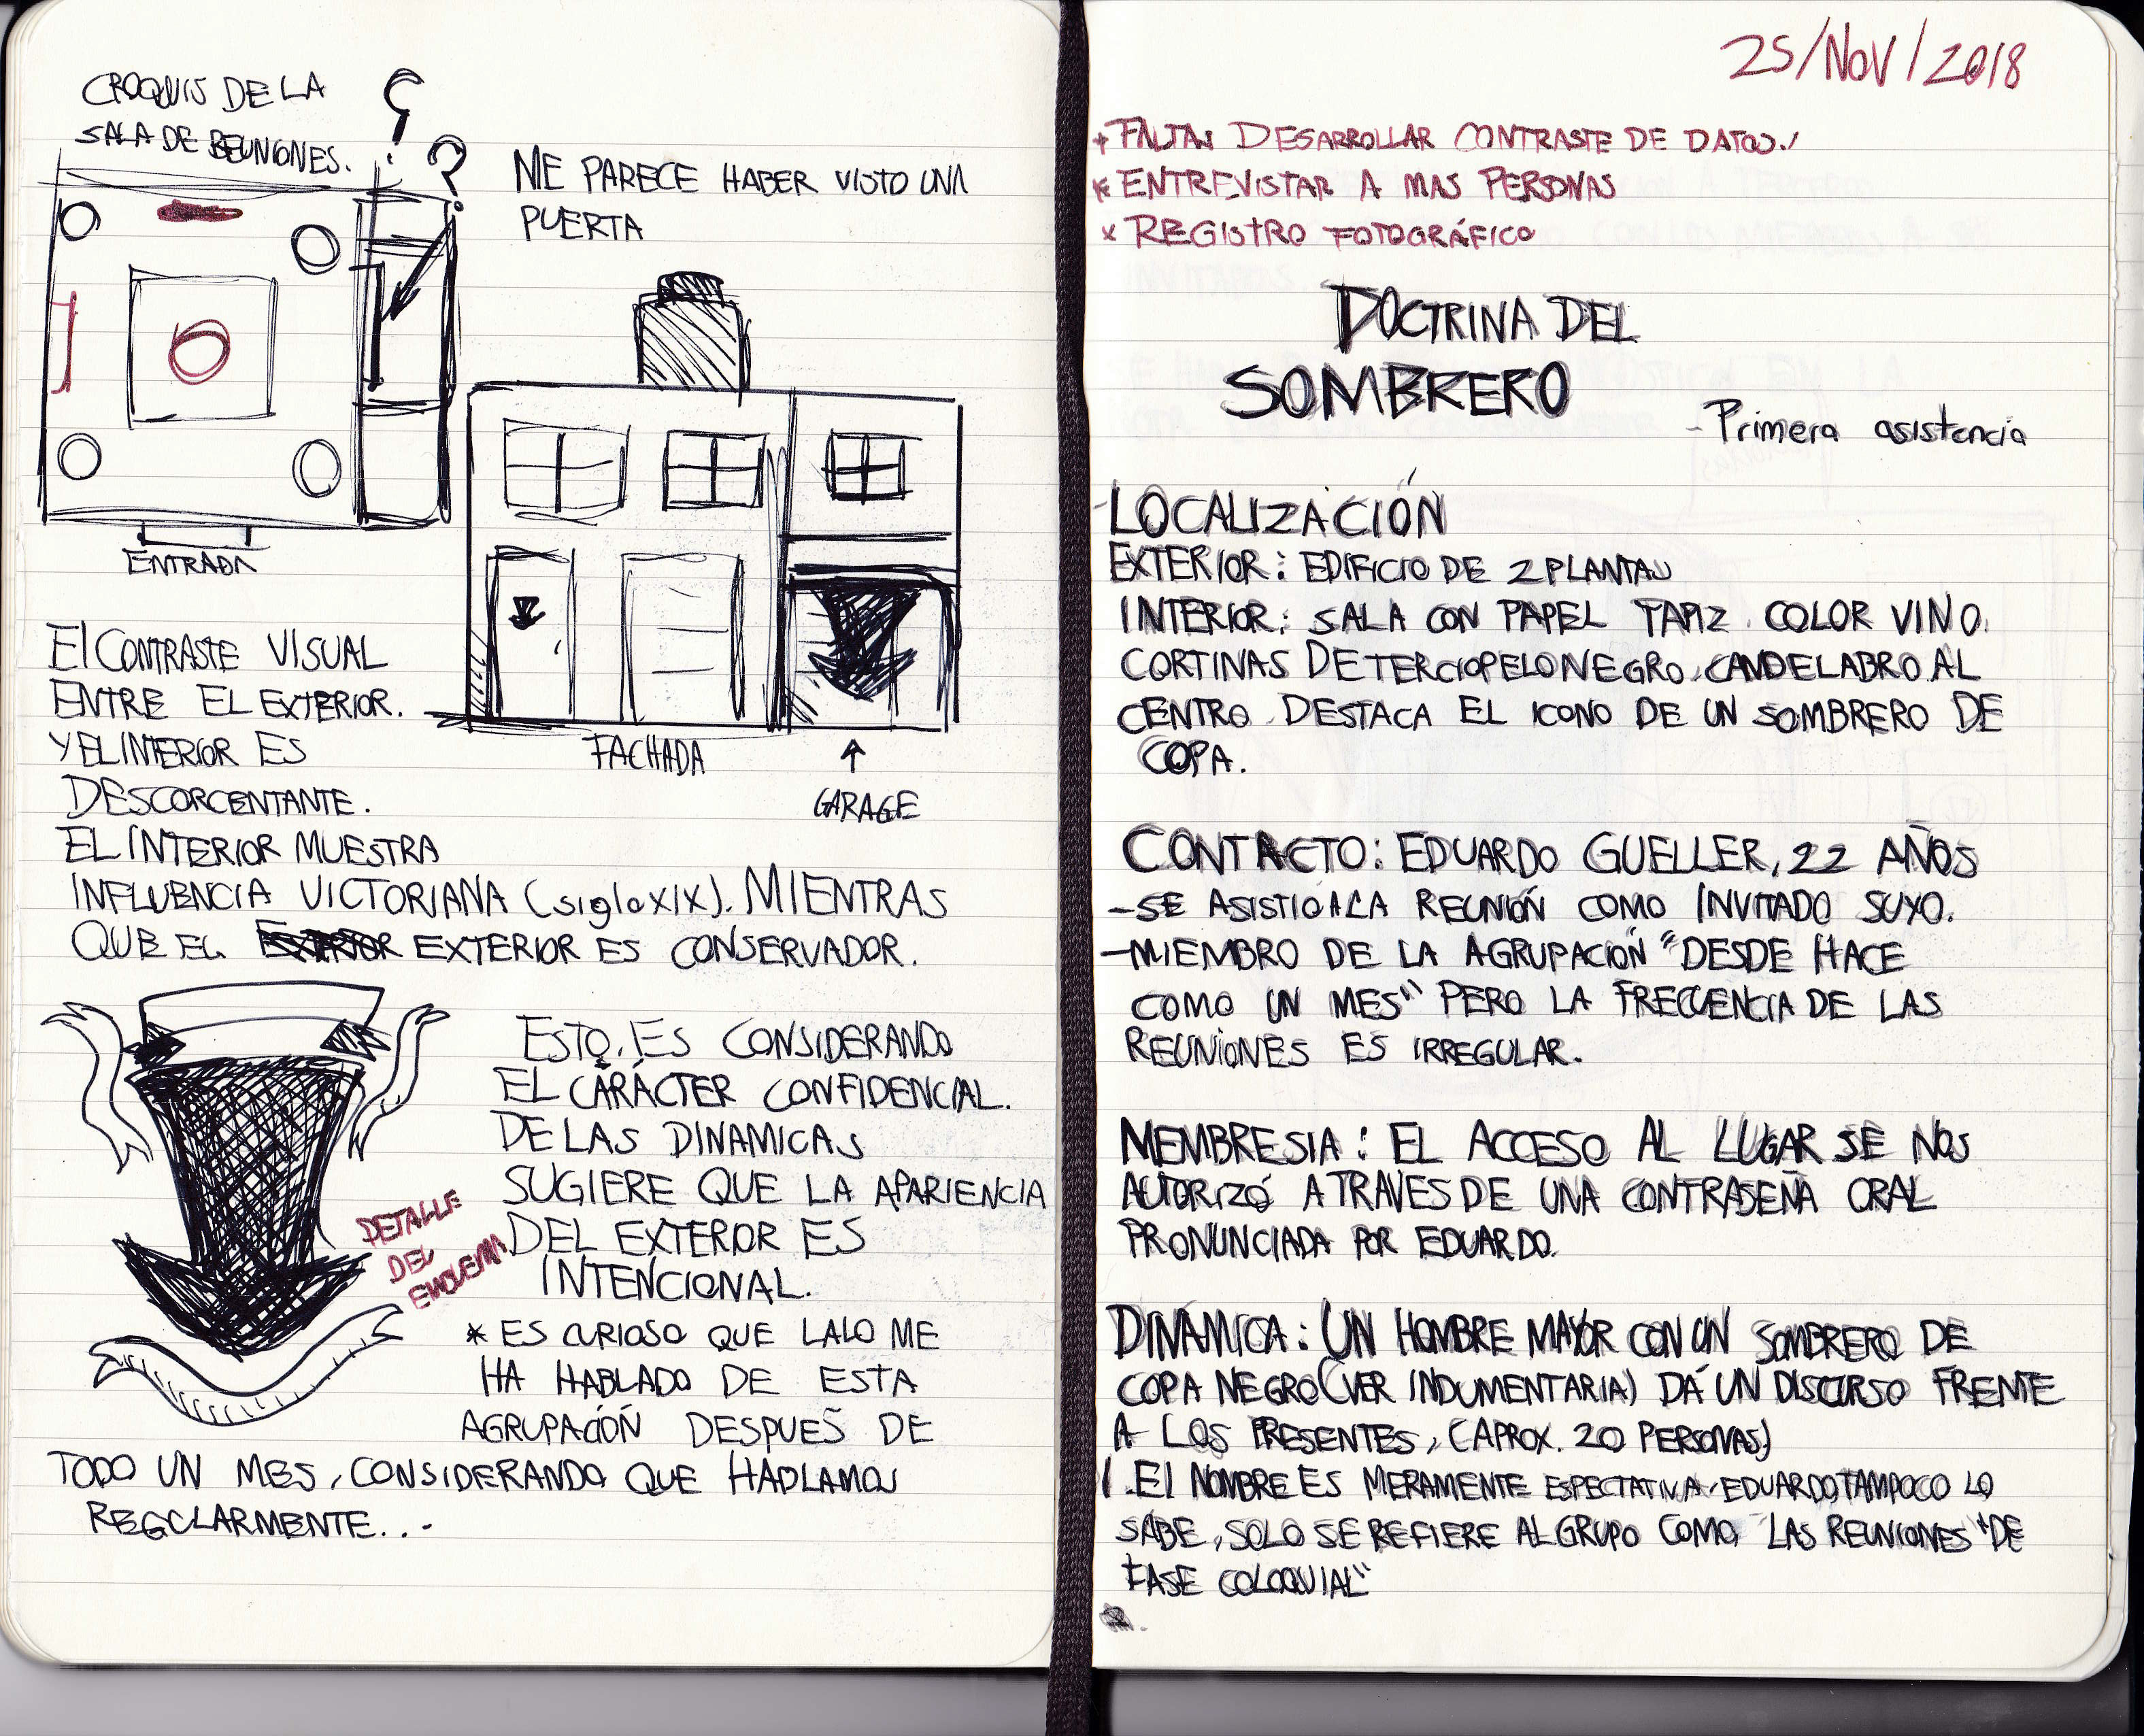 CROQUIS DE LA
SALA DE REUNIONES.
?
?
ME PARECE HABER VISTO UNA
PUERTA
ENTRADA
FACHADA
GARAGE
El CONTRASTE VISUAL
ENTRE EL EXTERIOR.
Y EL INTERIOR ES
DESCORCENTANTE.
EL INTERIOR MUESTRA
INFLUENCIA VICTORIANA (siglo XIX). MIENTRAS
QUE EL EXTERIOR EXTERIOR ES CONSERVADOR.
ESTO, ES CONSIDERANDO
EL CARÁCTER CONFIDENCIAL.
DE LAS DINAMICAS
SUGIERE QUE LA APARIENCIA
DEL EXTERIOR ES
INTENCIONAL.
DETALLE
DEL
EMBLEMA
* ES CURIOSO QUE LALO ME
HA HABLADO DE ESTA
AGRUPACIÓN DESPUES DE
TODO UN MES, CONSIDERANDO QUE HABLAMOS
REGULARMENTE...
25/NOV/2018
* FALTAN DESARROLLAR CONTRASTE DE DATOS.
* ENTREVISTAR A MAS PERSONAS
* REGISTRO FOTOGRÁFICO
DOCTRINA DEL
SOMBRERO
- Primera asistencia
- LOCALIZACIÓN
EXTERIOR: EDIFICIO DE 2 PLANTAS
INTERIOR: SALA CON PAPEL TAPIZ COLOR VINO.
CORTINAS DE TERCIOPELO NEGRO, CANDELABRO AL
CENTRO. DESTACA EL ICONO DE UN SOMBRERO DE
COPA.
CONTACTO: EDUARDO GUELLER, 22 AÑOS
- SE ASISTIÓ A LA REUNIÓN COMO INVITADO SUYO.
- MIEMBRO DE LA AGRUPACIÓN "DESDE HACE
COMO UN MES" PERO LA FRECUENCIA DE LAS
REUNIONES ES IRREGULAR.
MEMBRESIA: EL ACCESO AL LUGAR SE NOS
AUTORIZÓ A TRAVES DE UNA CONTRASEÑA ORAL
PRONUNCIADA POR EDUARDO.
DINÁMICA: UN HOMBRE MAYOR CON UN SOMBRERO DE
COPA NEGRO (VER INDUMENTARIA) DA UN DISCURSO FRENTE
A LOS PRESENTES, (APROX. 20 PERSONAS)
1. El NOMBRE ES MERAMENTE ESPECTATIVA, EDUARDO, TAMPOCO LO
SABE, SOLO SE REFIERE AL GRUPO COMO LAS REUNIONES "DE
FASE COLOQUIAL"